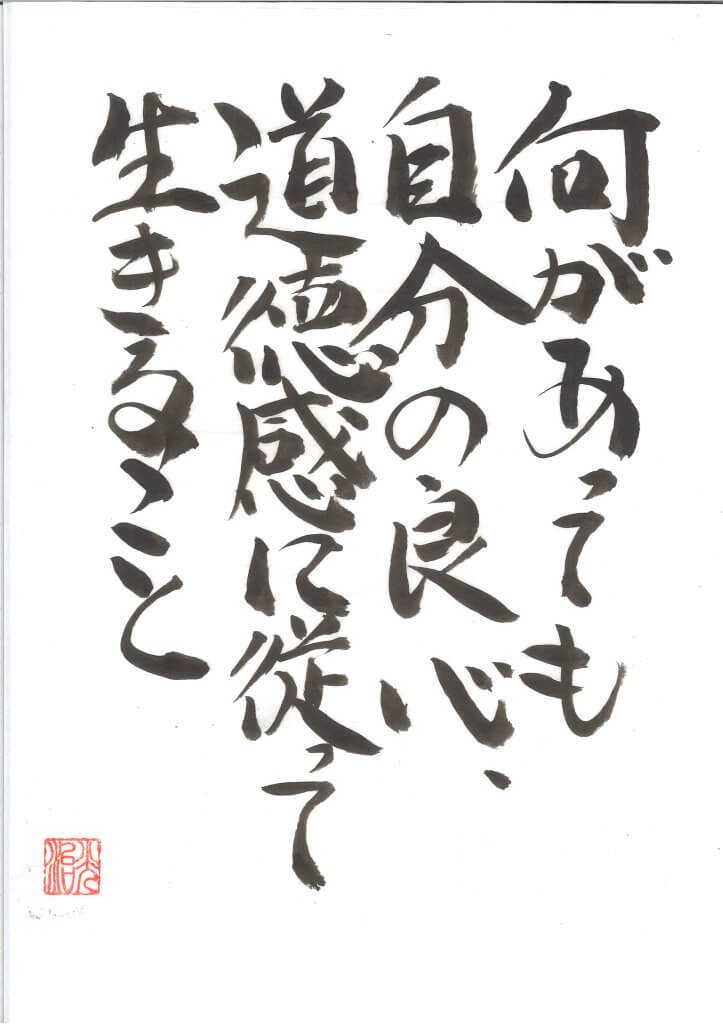 何があっても
自分の良心、
道徳感に従って
生きること